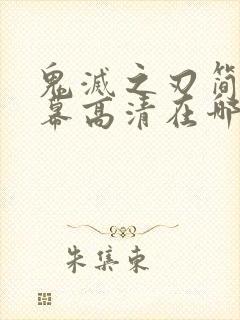 鬼灭之刃简
幕高清在哪
朱集东